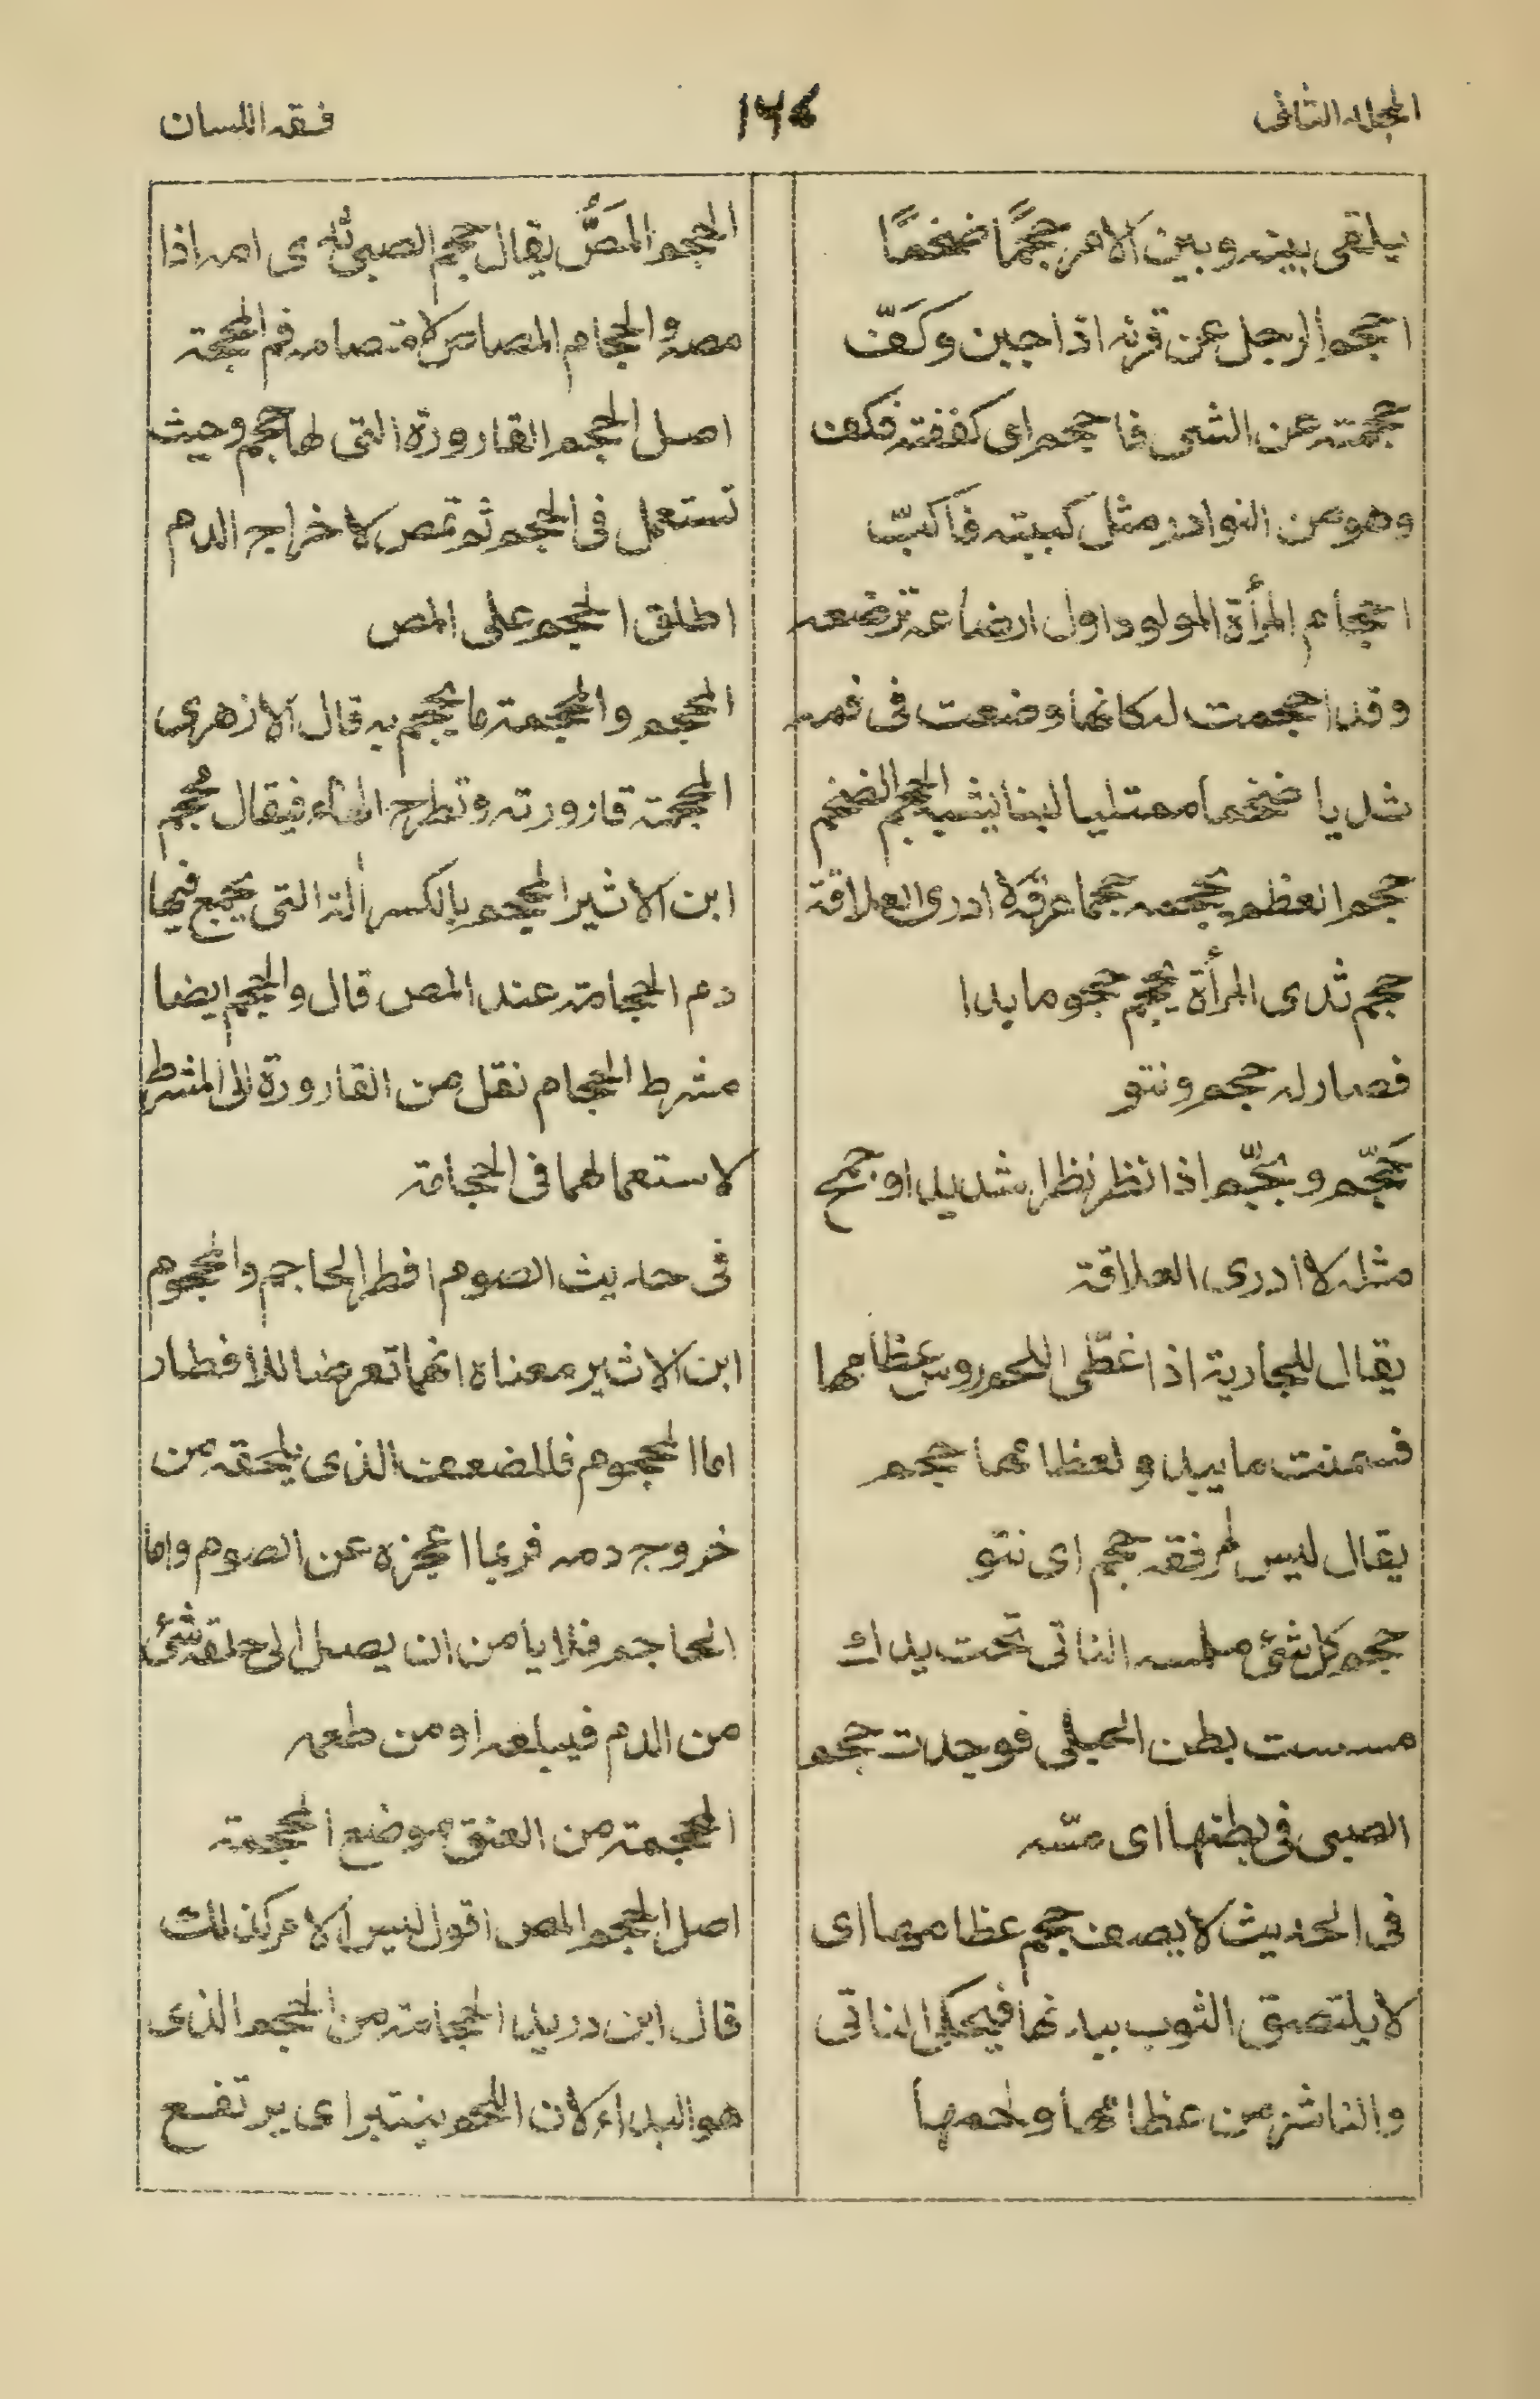 المجلد الثانى
١٦٤
فقه اللسان
يلقى بينه وبين الامر حجمًا ضخمًا
احجم الرجل عن قرنه اذا جبن وكفّ
حجمته عن الشى فاحجم اى كففته فكف
وهو من النوادر مثل كببته فاكبّ
احجام المرأة المولود اول ارضاعة ترضعه
وقد احجمت له كانها وضعت فى فمه
ثديا ضخما ممتليا لبنا يشبه الحجم الضخم
حجم العظم يحجمه حجما عرقه لا ادرى العلاقة
حجم ثدى المرأة يحجم حجوما بدا
فصار له حجم ونتو
حجّم وبجّم اذا نظر نظرا شديدا وجمح
مثله لا ادرى العلاقة
يقال للجارية اذا غطّى اللحم روس عظامها
فسمنت ما يبدو لعظامها حجم
يقال ليس لمرفقه حجم اى نتو
حجم كل شئ ملمسه الناتى تحت يدك
مسست بطن الحبلى فوجدت حجم
الصبى فى بطنها اى مسّه
فى الحديث لا يصف حجم عظامها اى
لا يلتصق الثوب ببدنها فيحكى الناتى
والناشز من عظامها ولحمها
الحجم المَصُّ يقال حجم الصبى ثدى امه اذا
مصه والحجام المصاص لامتصامه فم المحجمة
اصل الحجم القارورة التى لها حجم وحيث
تستعمل فى الحجم ثم تمص لاخراج الدم
اطلق الحجم على المص
المحجم والمحجمة ما يحجم به قال الازهرى
المحجمة قارورته وتطرح الهاء فيقال مُحجم
ابن الاثير المحجم بالكسر ألة التى يجمع فيها
دم الحجامة عند المص قال والمحجم ايضا
مشرط الحجام نقل من القارورة الى المشرط
لاستعمالهما فى الحجامة
فى حديث الصوم افطر الحاجم والمحجوم
ابن الاثير معناه انهما تعرضا للافطار
اما المحجوم فللضعف الذى يلحقه من
خروج دمه فربما اعجزه عن الصوم واما
الحاجم فلا يأمن ان يصل الى حلقه شئ
من الدم فيبلعه او من طعمه
المحجمة من العنق موضع المحجمة
اصل الحجم المص اقول ليس الامر كذلك
قال ابن دريد الحجامة من الحجم الذى
هو البداء لان اللحم ينتبر اى يرتفع